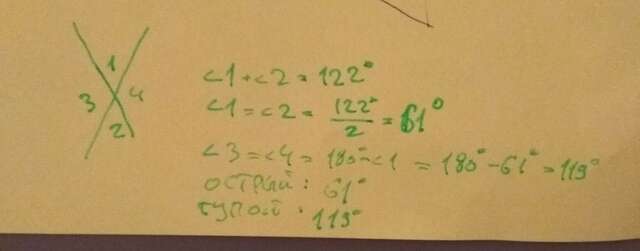 1
3 4
2
∠1+∠2=122°
∠1=∠2= 122°/2 = 61°
∠3=∠4=180-∠1 = 180°-61°=119°
ОСТРЫЙ: 61°
ТУПОЙ: 119°